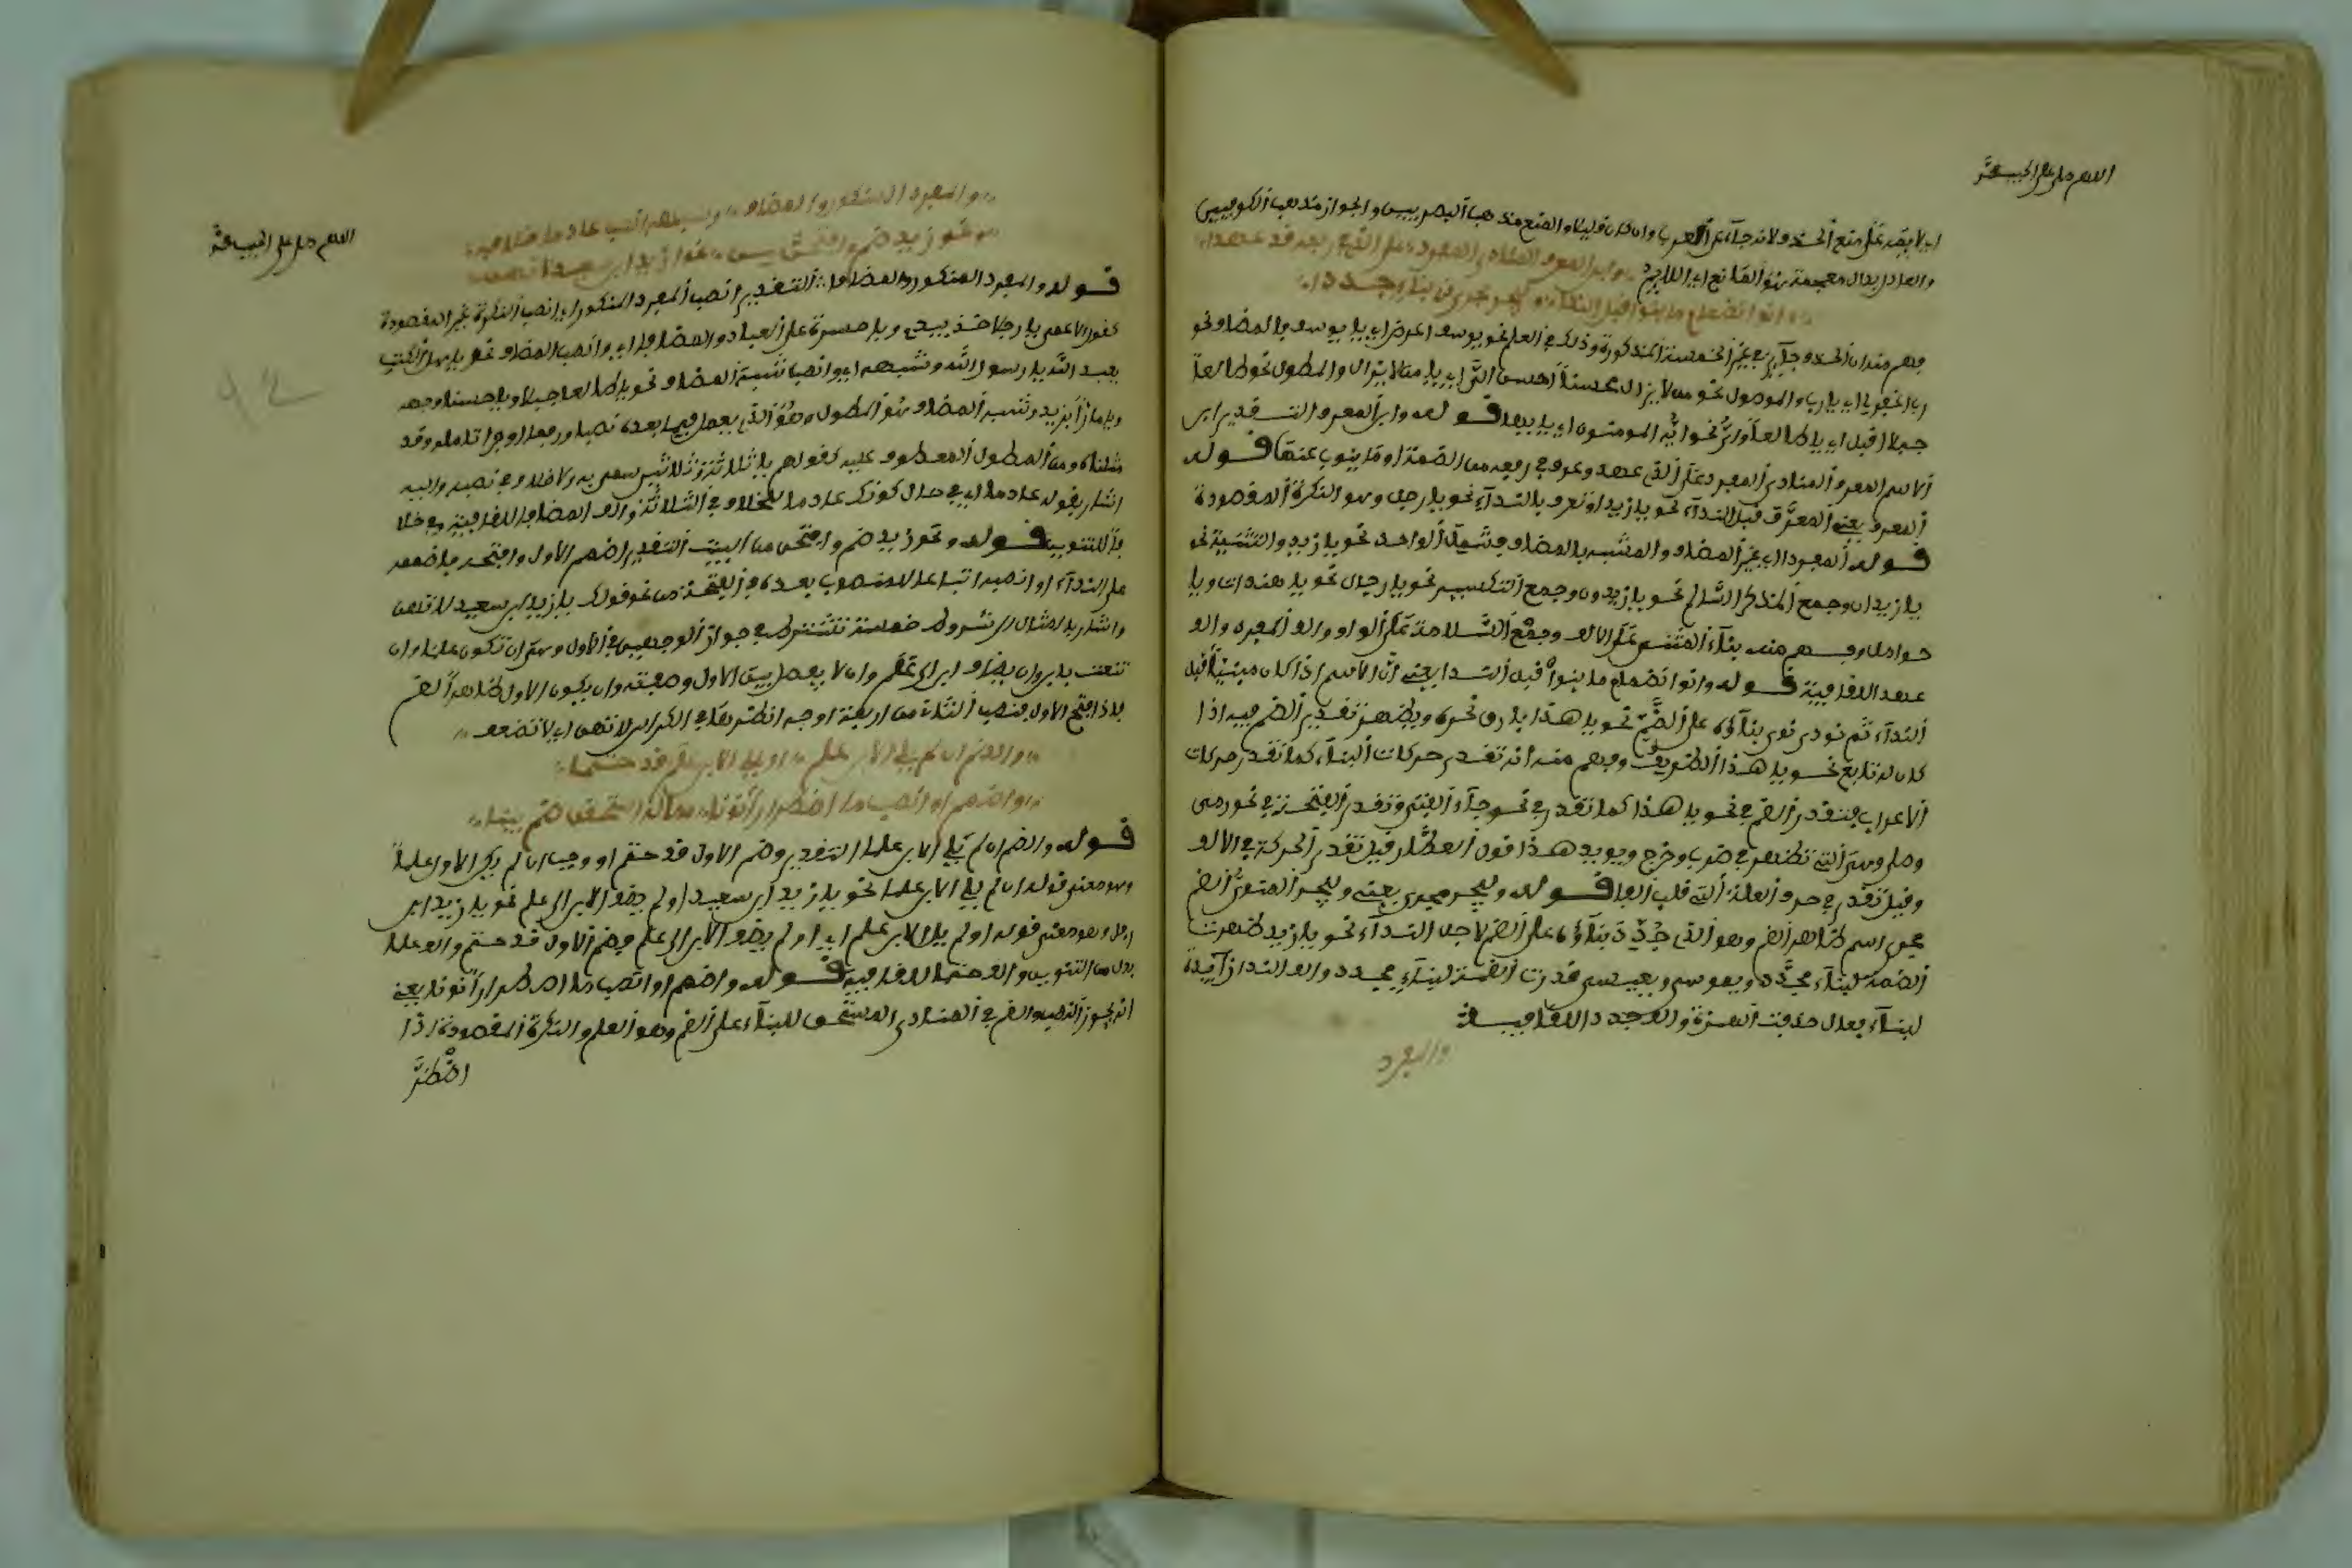 اللهم صل على الحبيب محمد
اي لا يقدر على منع الحذف لانه جاء عن العرب وان كان قليلا والمنع مذهب البصريين والجواز مذهب الكوفيين
والعاذل بذال معجمة هو المانع اي اللايم وابن المعرف المنادى المفردا على الذي في رفعه قد عهدا
وانو انضمام ما بنوا قبل الندا وليجر مجرى ذي بناء جددا
وفهم منه ان الحذف جايز في غير الخمسة المذكورة وذلك في العلم نحو يوسف اعرض اي يا يوسف والمضاف نحو
رب اغفر لي اي يا رب والموصول نحو من لا يزال محسنا احسن الي اي يا من لا يزال والمطول نحو طالعا
جبلا اقبل اي يا طالعا واي نحو ايه المومنون اي يا ايها قوله وابن المعرف التقدير ابن
الاسم المعرف المنادى المفرد على الذي عهد وعرف في رفعه من الضمة او ما ينوب عنها قوله
المعرف يعني المعرف قبل النداء نحو يا زيد او تعرف بالنداء نحو يا رجل وهو النكرة المقصودة
قوله المفردا اي غير المضاف والمشبه بالمضاف وشمل الواحد نحو يا زيد والتثنية نحو
يا زيدان وجمع المذكر السالم نحو يا زيدون وجمع التكسير نحو يا رجال نحو يا هندات ويا
حوامل وفهم منه بناء المثنى على الالف وجمع السلامة على الواو والف المفرد والف
عهدا للقافية قوله وانو انضمام ما بنوا قبل الندا يعني ان الاسم اذا كان مبنيا قبل
النداء ثم نودي نوي بناؤه على الضم نحو يا هذا يا رقاش نحوه ويظهر تقدير الضم فيه اذا
كان له تابع نحو يا هذا الظريف وفهم منه انه تقدر حركات البناء كما تقدر حركات
الاعراب فتقدر الضم في نحو يا هذا كما تقدر في نحو جاء الفتى وتقدر الفتحة في نحو رمى
وقيل تقدر في حرف العلة التي قلب الفا قوله وليجر مجرى يعني وليجر المنوي الضم
مجرى اسم ظاهر الضم وهو الذي جدد بناؤه على الضم لاجل النداء نحو يا زيد ظهرت
الضمة لبناء مجدد ويا موسى ويا عيسى قدرت الضمة لبناء مجدد والف الندا زايدة
لبناء يقال حذفت الهمزة والف جددا للقافية
والمفرد
اللهم صل على الحبيب محمد
والمفرد المنكور والمضافا وشبهه انصب عادما خلافا
ونحو زيد ضم وافتحن من نحو ازيد ابن سعيد لا تهن
قوله والمفرد المنكور والمضافا التقدير انصب المفرد المنكور اي انصب النكرة غير المقصودة
كقول الاعمى يا رجلا خذ بيدي ويا حسرة على العباد والمضافا اي وانصب المضاف نحو يا اهل الكتب
يعبد الله يا رسول الله وشبهه اي وانصب شبه المضاف نحو يا طالعا جبلا ويا حسنا وجهه
ويا مارا بزيد وشبه المضاف هو المطول وهو الذي يعمل فيما بعده نصبا ورفعا وجرا تاملوه وقد
مثلناه ومن المطول المعطوف عليه كقولهم يا ثلاثة وثلاثين سمي به ولا خلاف في نصبه واليه
اشار بقوله عادما اي في حال كونك عادما للخلاف في الثلاثة والف المضافا للقافية وخلا
فا للتنوين قوله ونحو زيد ضم وافتحن من البيت التقدير اضمم الاول وافتحه فاضمم
على النداء او انصبه اتباعا للمنصوب بعده في الفتحة من نحو قولك يا زيد ابن سعيد لا تهن
واشار بالمثال الى شروط خمسة تشترط في جواز الوجهين في الاول وهي ان تكون علما وان
تنعت بابن وان يضاف ابن الى علم وان لا يفصل بين الاول وصفته وان يكون الاول ظاهر الضم
والضم ان لم يلي الابن علما او يلي الابن علم قد حتما
واضمم او انصب ما اضطرارا نونا مما له استحقاق ضم بينا
قوله والضم ان لم يلي الابن علما التقدير وضم الاول قد حتم او وجب ان لم يكن الاول علما
وهو معنى قوله ان لم يلي الابن علما نحو يا زيد ابن سعيد او لم يضف الابن الى علم نحو يا زيد ابن
اخي وهو معنى قوله او لم يلي الابن علم اي او لم يضف الابن الى علم وضم الاول قد حتم والف علما
بدل من التنوين والف حتما للقافية قوله واضمم او انصب ما اضطرارا نونا يعني
انه يجوز النصب والضم في المنادى المستحق للبناء على الضم وهو العلم والنكرة المقصودة اذا
اضطر